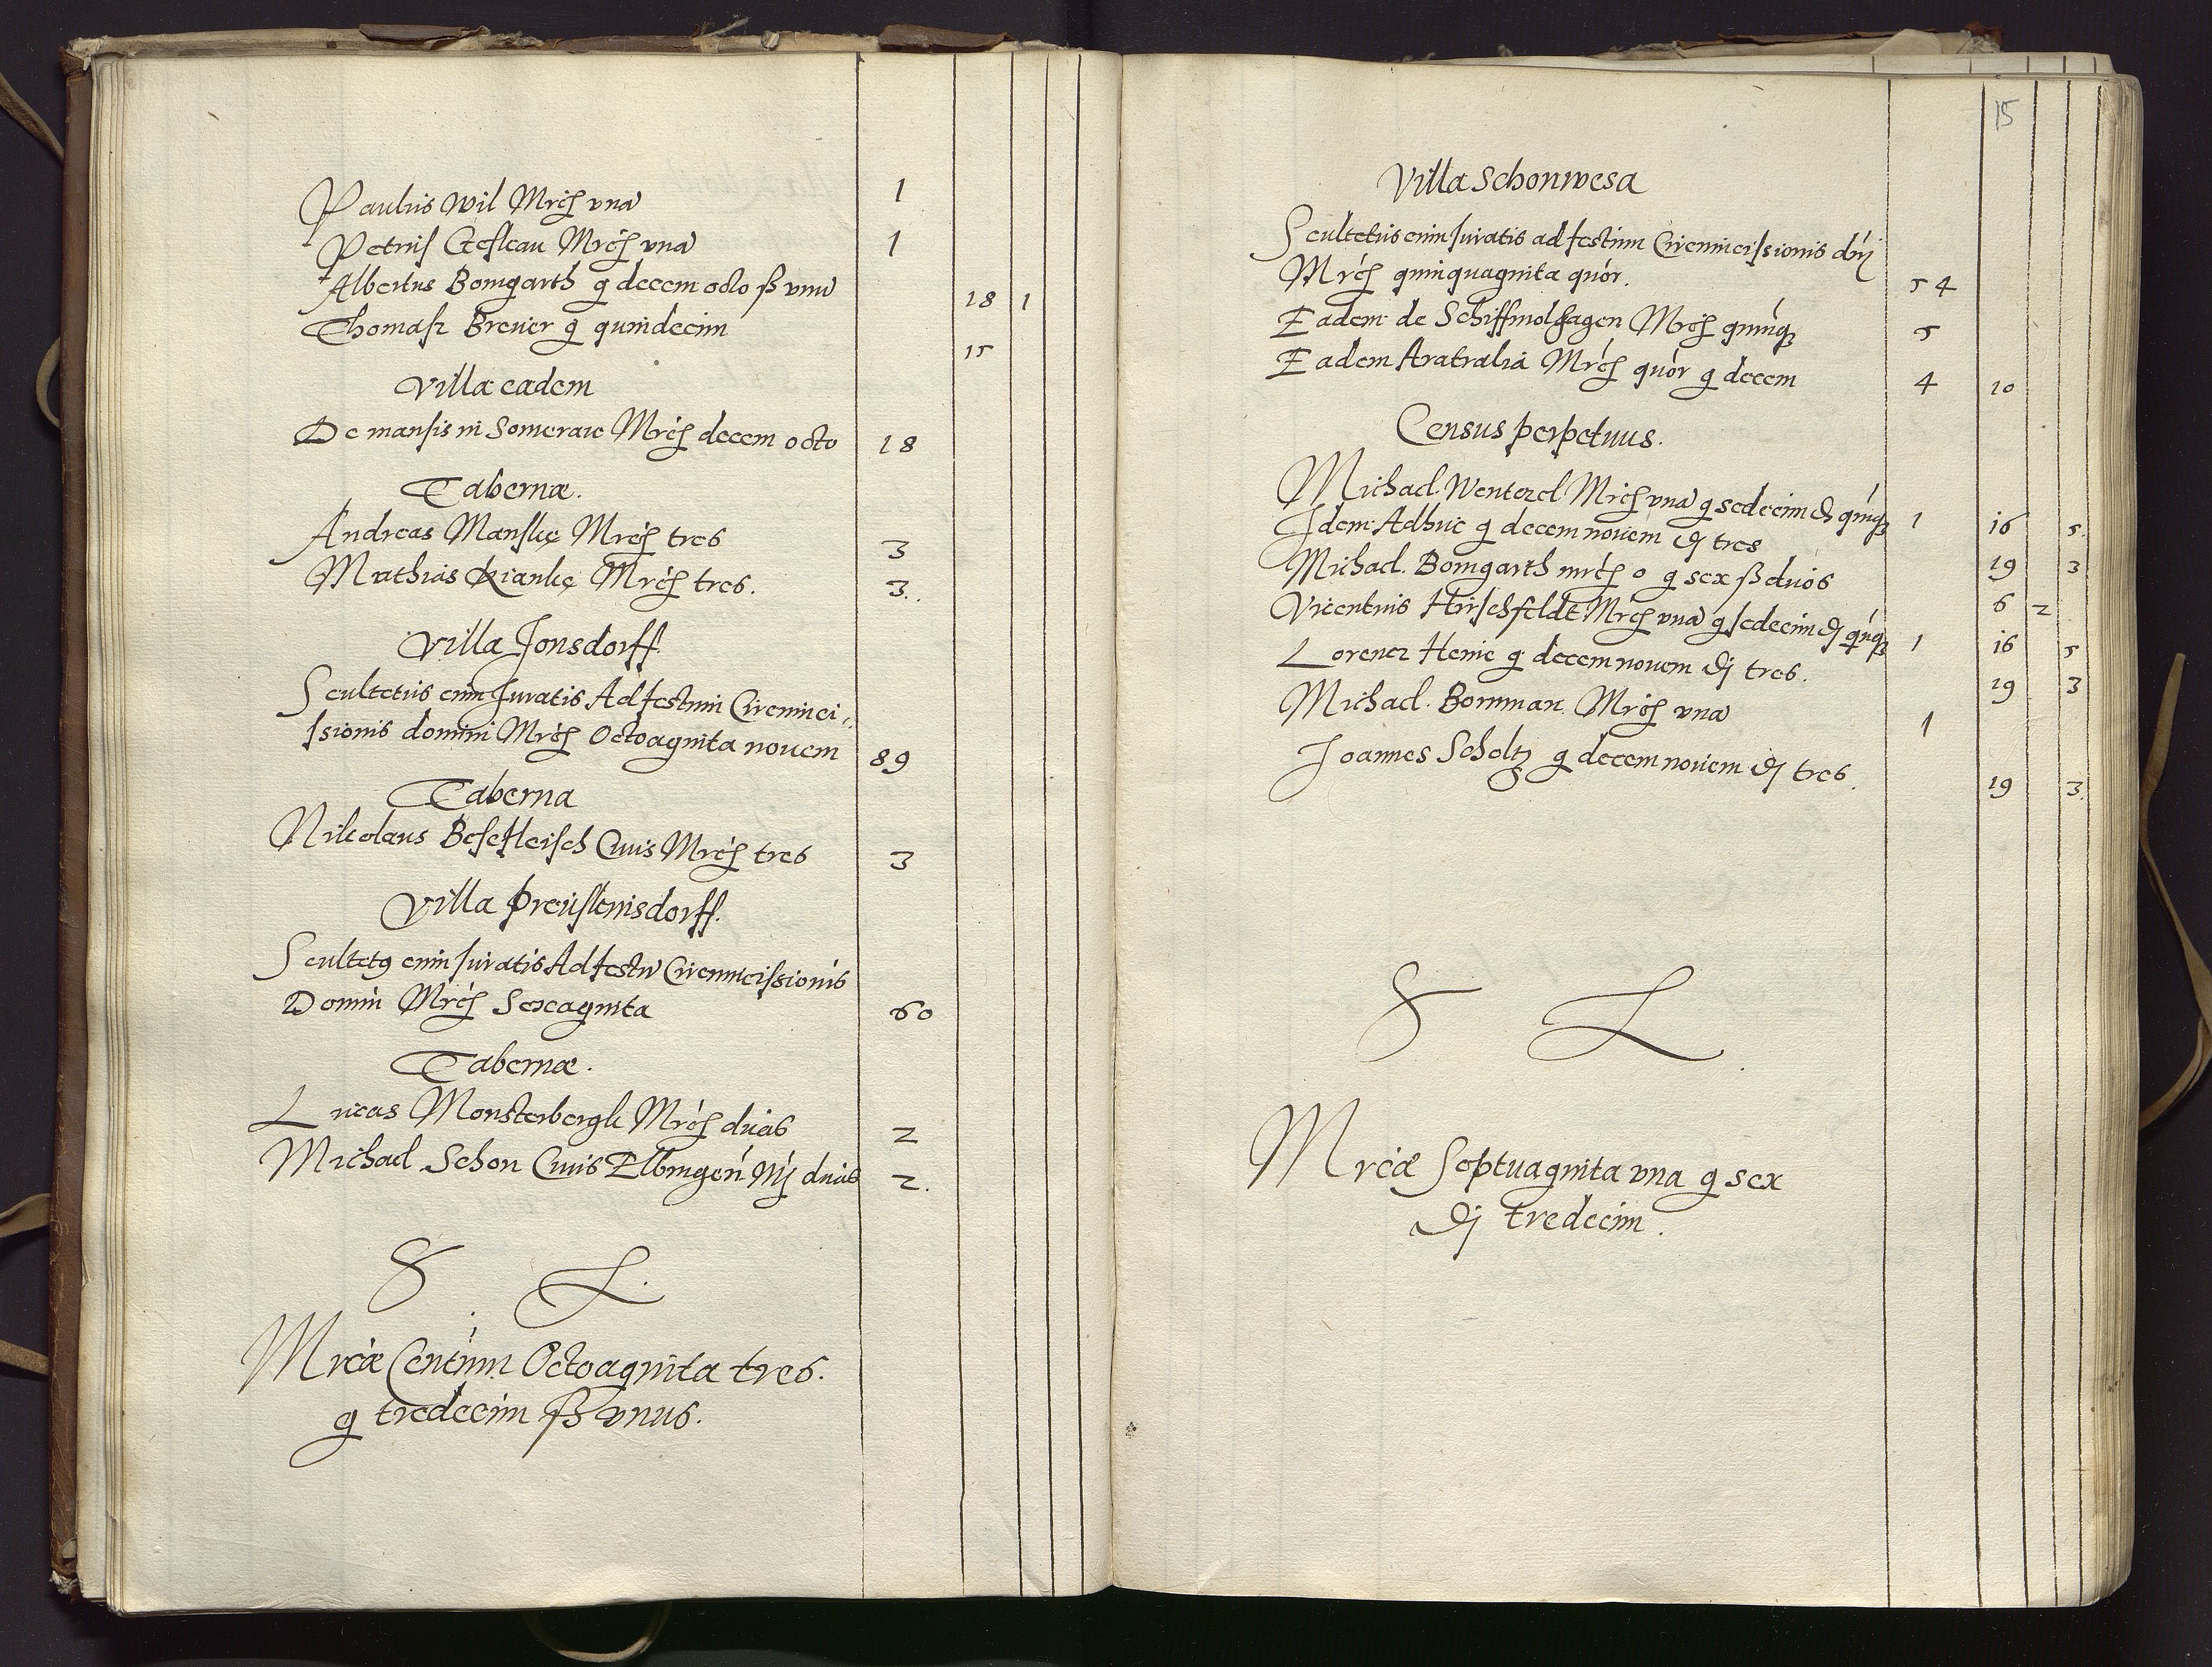 Paulus Wil Mrcɧ vna 1
Petrus Gesleau Mrcɧ vna 1
Albertus Bomgarth g decem octo ß vnū 18 1
Thomass Breuer g quindecim 15
Villa eadem
De mansis in Someraw Mrcɧ decem octo 18
Tabernæ.
Andreas Manskę Mrcɧ tres 3
Mathias Kiankę Mrcɧ tres. 3.
Villa Jonsdorff
Scultetus cum Juratis Ad festum Circumci-
sionis domini Mrcɧ Octoaginta nouem 89
Taberna
Nikolaus Besefleisch Ciuis Mrcɧ tres 3
Villa Preuskenisdorff.
Scultetꝰ cum Juratis Ad festū Circumcissionis
Domini Mrcɧ Sexaginta 60
Tabernæ.
Lucas Monsterbergk Mrcɧ duas 2
Michael Schon Ciuis Elbingeñ duas 2.
S L.
Mrcæ Centum Octoaginta tres.
g tredecim ß vnus.
15
Villa Schonwesa
Scultetus cum Juratis ad festum Circumcissionis dñj
Mrcɧ quinquaginta quór. 54
Eadem de Schiffmolhagen Mrcɧ quinqꝫ 5
Eadem Aratralia Mrcɧ quór g decem 4 10
Census perpetuus.
Michael Wentzel Mrcɧ vna g sedecim ₰ quinqꝫ 1 16 5.
Idem Adhuc g decem nouem ₰ tres 19 3
Michael Bomgarth mrcɧ o g sex ß duos 6 2
Vicentius Hirschfeldt Mrcɧ vna g sedecim ₰ quinqꝫ 1 16 5
Lorentz Henic g decem nouem ₰ tres. 19 3
Michael Bornman Mrcɧ vna 1
Joannes Scholtz g decem nouem ₰ tres. 19 3.
S L.
Mrcæ Septuaginta vna g sex
₰ tredecim.